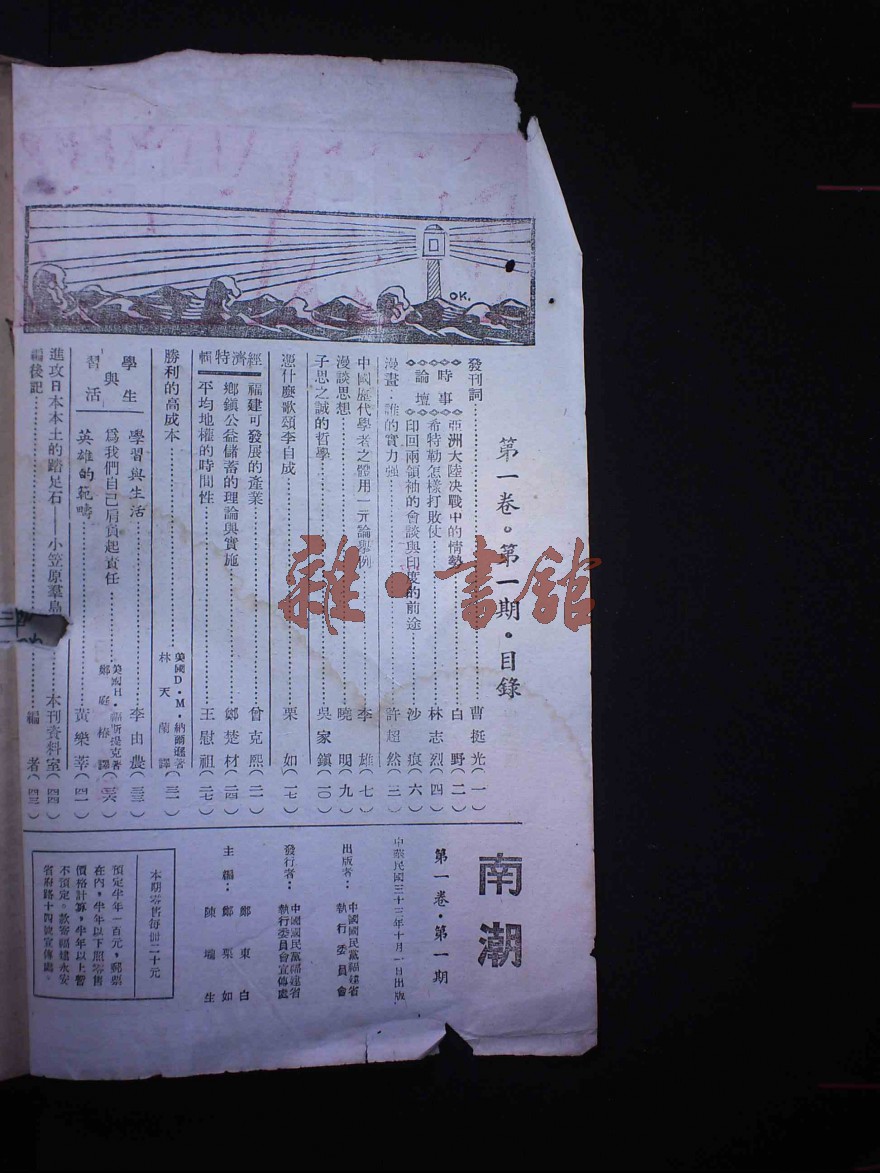 第一卷。第一期·目錄
發刊詞 曹挺光(一)
時事論壇
亞洲大陸决戰中的情勢 白野(二)
希特勒怎樣打敗仗 林志烈(四)
印回兩領袖的會談與印度的前途 沙痕(六)
漫畫：誰的實力強 許超然(三)
中國歷代學者之體用一元論舉例 李雄(七)
漫談思想 曉明(九)
子思之誠的哲學 吳家鎮(一〇)
憑什麽歌頌李自成 栗如(一七)
經濟特輯
福建可發展的產業 曾克熙(二一)
鄉鎮公益儲蓄的理論與實施 鄭楚材(二四)
平均地權的時間性 王慰祖(二七)
勝利的高成本 美國D·M·納爾遜著 林天蘭譯(三一)
學生與習活
學習與生活 李由農(三三)
爲我們自己肩負起責任 美國H·福斯提克著 鄭庭椿譯(三六)
英雄的範疇 黃樂莘(四一)
進攻日本本土的踏足石——小笠原羣島 本刊資料室(四四)
編後記 編者(四三)
OK.
雜·書館
南潮
第一卷·第一期
中華民國三十三年十月一日出版
出版者：中國國民黨福建省執行委員會
發行者：中國國民黨福建省執行委員會宣傳處
主編：鄭東白
鄭栗如
陳端生
本期零售每冊二十元
預定半年一百元，郵票
在內，半年以下照零售
價格計算，半年以上暫
不預定。款寄福建永安
省府路十四號宣傳處。